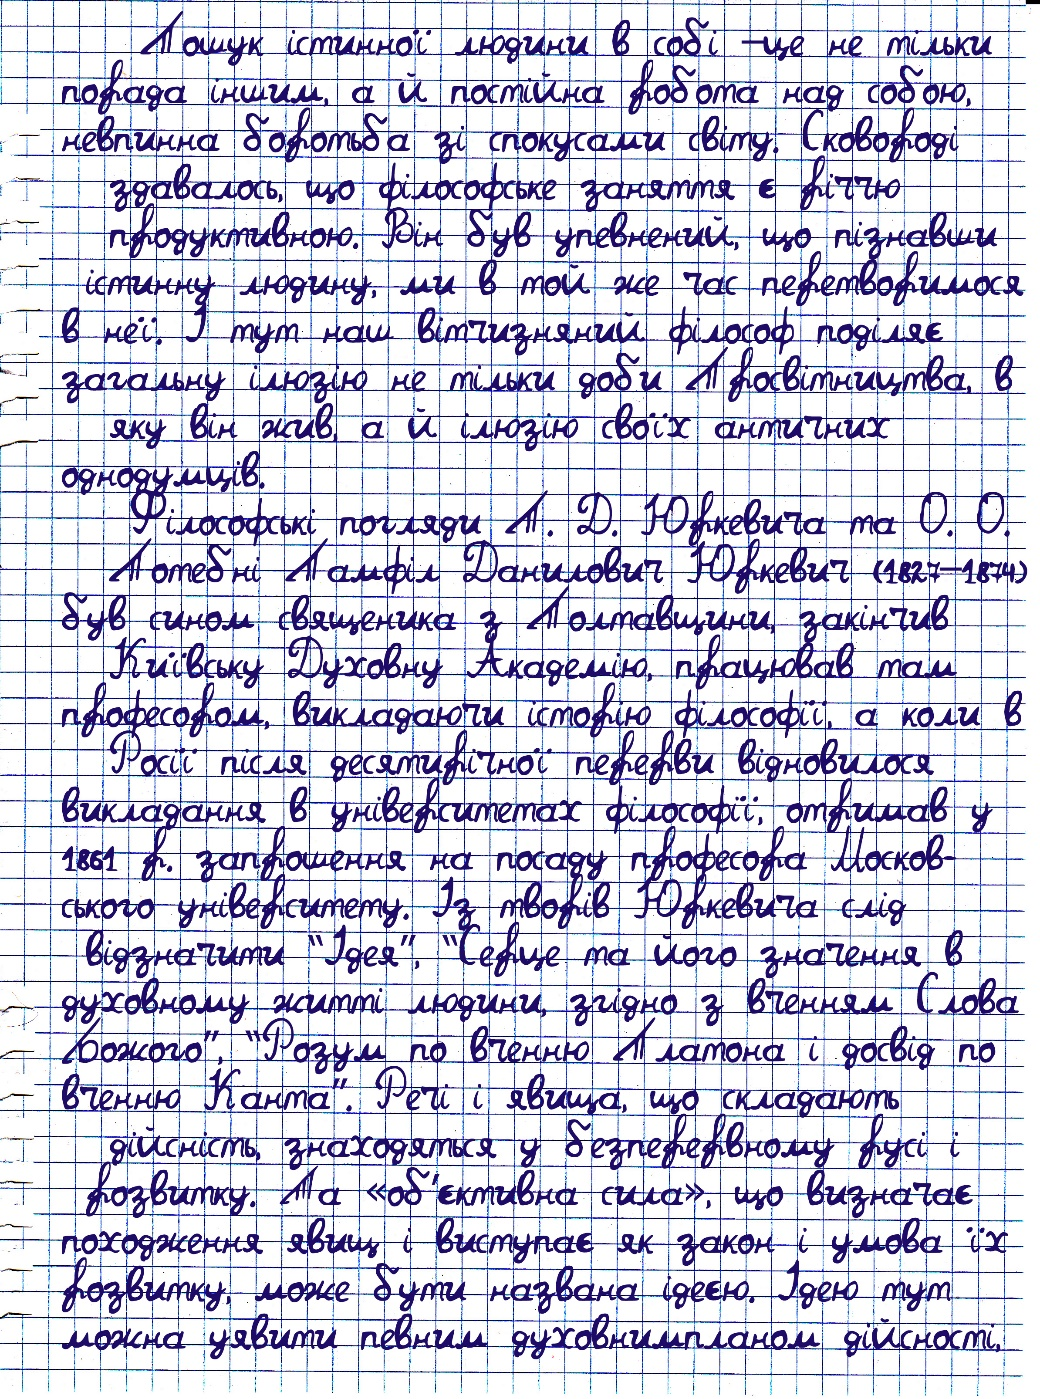 Пошук істинної людини в собі –це не тільки
порада іншим, а й постійна робота над собою,
невпинна боротьба зі спокусами світу. Сковороді
здавалось, що філософське заняття є річчю
продуктивною. Він був упевнений, що пізнавши
істинну людину, ми в той же час перетворимося
в неї. І тут наш вітчизняний філософ поділяє
загальну ілюзію не тільки доби Просвітництва, в
яку він жив, а й ілюзію своїх античних
однодумців.
Філософські погляди П. Д. Юркевича та О. О.
Потебні Памфіл Данилович Юркевич (1827–1874)
був сином священика з Полтавщини, закінчив
Київську Духовну Академію, працював там
професором, викладаючи історію філософії, а коли в
Росії після десятирічної перерви відновилося
викладання в університетах філософії, отримав у
1861 р. запрошення на посаду професора Москов-
ського університету. Із творів Юркевича слід
відзначити "Ідея", "Серце та його значення в
духовному житті людини, згідно з вченням Слова
Божого", "Розум по вченню Платона і досвід по
вченню Канта". Речі і явища, що складають
дійсність, знаходяться у безперервному русі і
розвитку. Та «об'єктивна сила», що визначає
походження явищ і виступає як закон і умова їх
розвитку, може бути названа ідеєю. Ідею тут
можна уявити певним духовнимпланом дійсності,